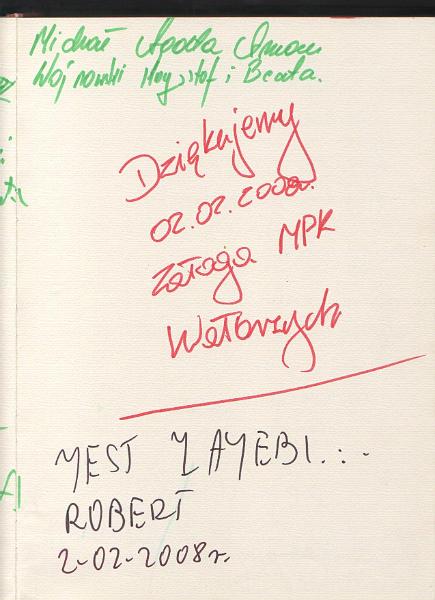 Michał Agata
Wojnowski Krzysztof i Beata.
Dziękujemy
02.02.2008r.
Załoga MPK
YEST ZAYEBI...
ROBERT
2-02-2008r.